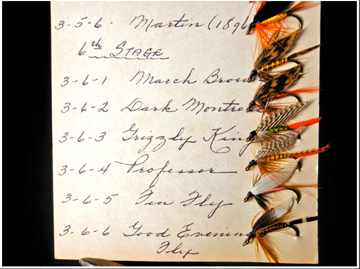 3-5-6- Martin (1896
6th STAGE
3-6-1 March Brown
3-6-2 Dark Montreal
3-6-3 Grizzly King
3-6-4 Professor
3-6-5 Fin Fly
3-6-6 Good Evening
Fly